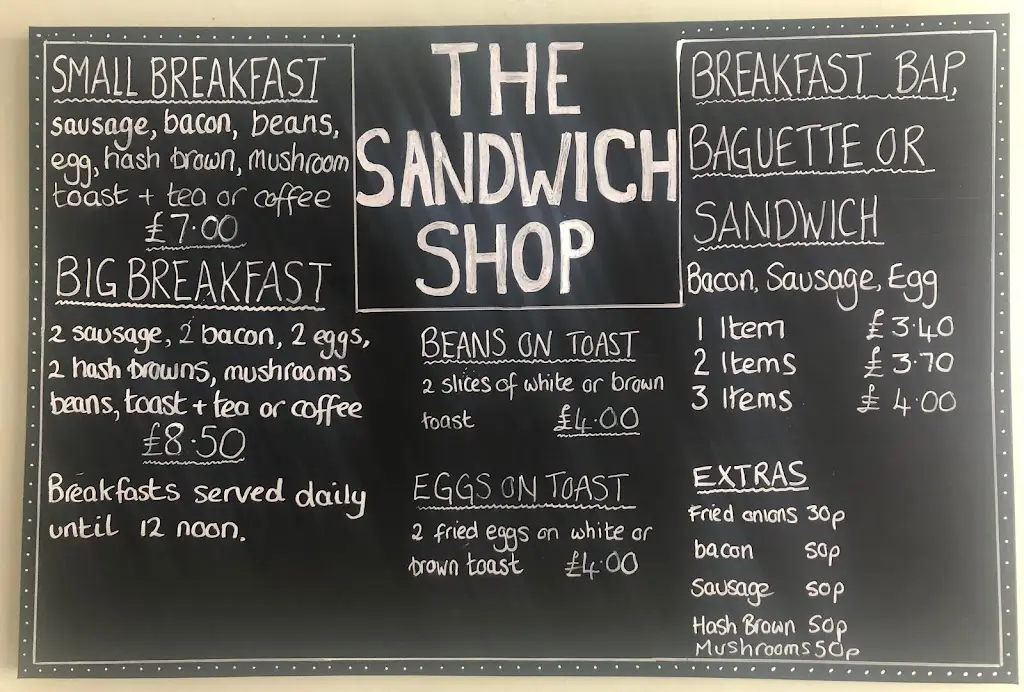 SMALL BREAKFAST
sausage, bacon, beans,
egg, hash brown, mushroom
toast + tea or coffee
£7.00
BIG BREAKFAST
2 sausage, 2 bacon, 2 eggs,
2 hash browns, mushrooms
beans, toast + tea or coffee
£8.50
Breakfasts served daily
until 12 noon.
THE
SANDWICH
SHOP
BEANS ON TOAST
2 slices of white or brown
toast £4.00
EGGS ON TOAST
2 fried eggs on white or
brown toast £4.00
BREAKFAST BAP,
BAGUETTE OR
SANDWICH
Bacon, Sausage, Egg
1 Item £3.40
2 Items £3.70
3 Items £4.00
EXTRAS
Fried onions 30p
bacon 50p
Sausage 50p
Hash Brown 50p
Mushrooms 50p